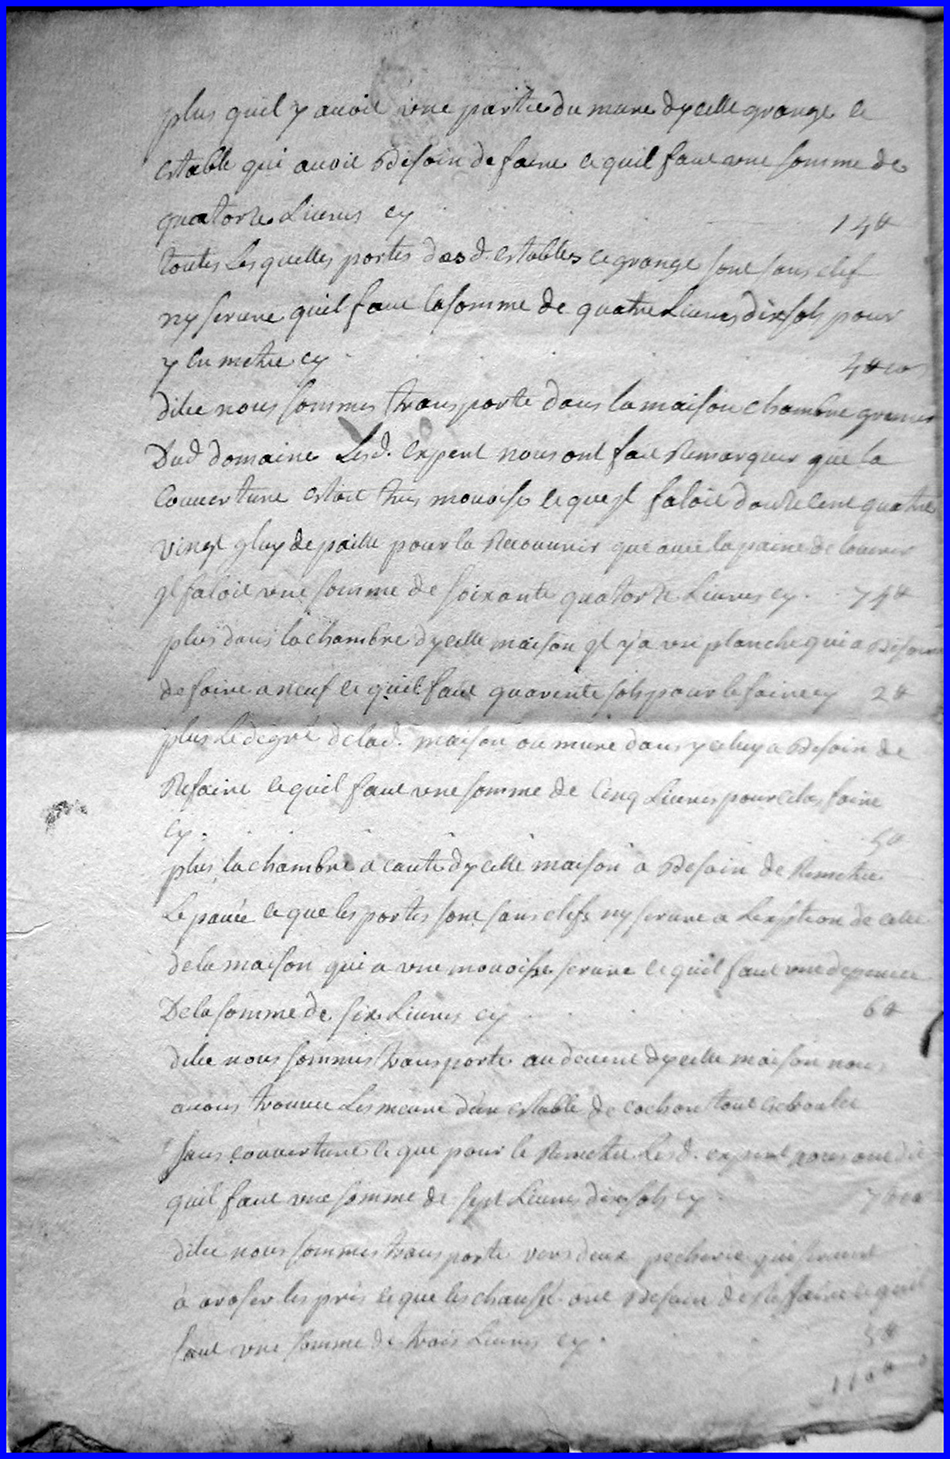 plus quil y avoit une partie du mure dycelle grange et
estable qui avoit Besoin de faire et quil faut une somme de
quatorze Livres cy 14 #
toutes Lesquelles portes desd. estables et grange sont sans clef
ny serure quil faut la somme de quatre Livres dix sols pour
y en metre cy 4 # 10
dilec nous sommes transporte dans la maison chambre grenier
Dud domaine Lesd. Expert nous ont fait Remarquer que la
Couverture estoit tres movoise et que jl faloit douze Cent quatre
vingt gluy de paille pour la Recouvrir que avec la paine de louvrier
jl faloit une somme de soixante quatorze Livres cy. 74 #
plus dans la chambre dycelle maison jl y a une planche qui a Besoin
de faire a neuf et quil faut quarente sols pour le faire cy 2 #
plus Le degré de lad. maison ou mure dans yceluy a Besoin de
Refaire et quil faut une somme de Cinq Livres pour faire
Cy. 5 #
plus la chambre a cauté dycelle maison a Besoin de Remetre
Le pavée et que les portes sont sans clefs ny serure a Lexsption de celle
de la maison qui a une movoise serure et quil faut une depence
De la somme de six Livres cy 6 #
dilec nous sommes transporte au devent dycelle maison nous
avons trouvee Les mure d'un estable de cochon tout
sans couverture et que pour le Remetre Lesd. expert nous ont dit
quil faut une somme de sept Livres dix sols cy 7 # 10
dilec nous sommes transporte vers deux pecherie qui servent
a aroser les prés et que les chaussé ont Besoin de Refaire et quil
faut une somme de trois Livres cy. 3 #